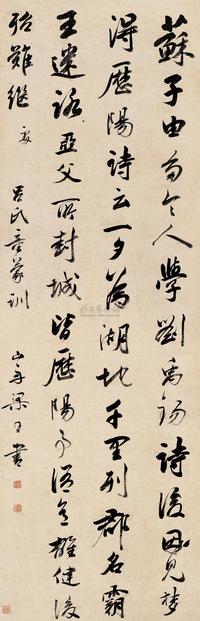 蘇子由多令人學劉禹錫詩後因見夢
得歷陽詩云一夕為湖地千里列郡名霸
王迷路亞父所封城皆歷陽事語意雄健後
殆難繼 處 呂氏童蒙訓 山舟梁同書